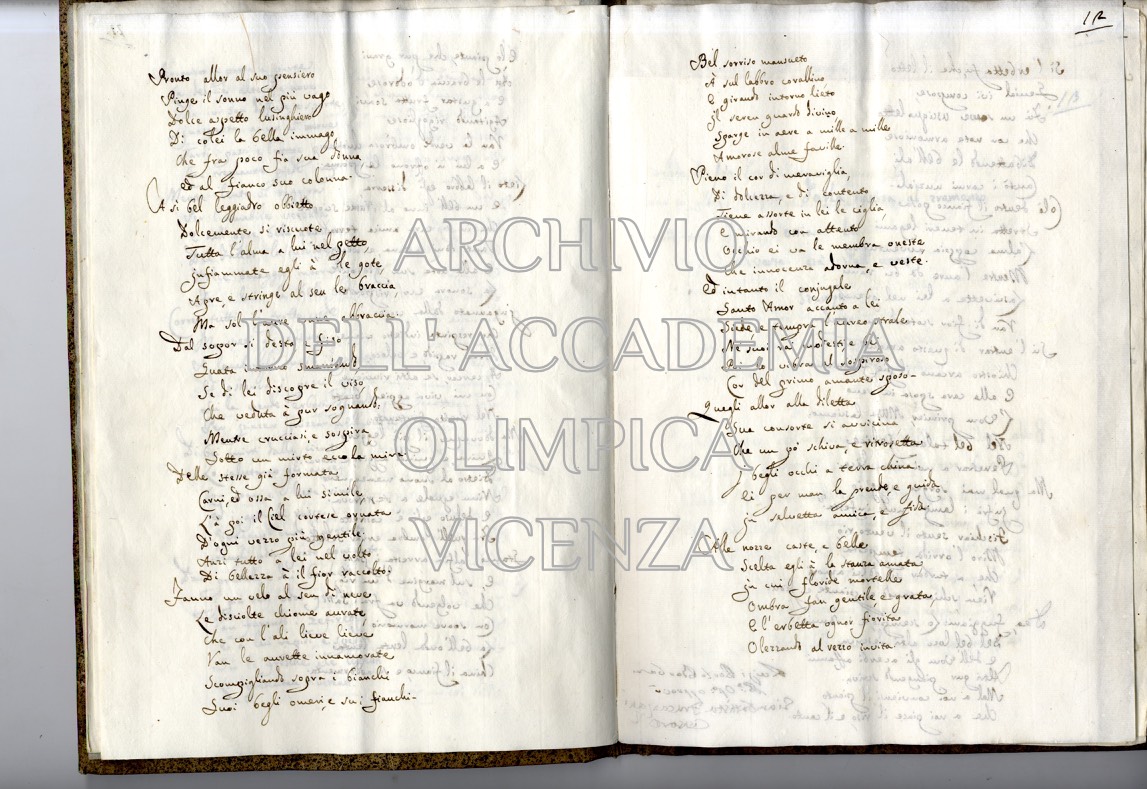 Pronto allor al suo pensiero
Pinge il sonno nel più vago
Dolce aspetto lusinghiero
Di colei la bella immago,
Che fra poco fia sua donna,
ed al fianco suo colonna.
A si bel leggiadro obbietto
Dolcemente si riscuote
Tutta l'alma a lui nel petto
Infiammate egli à le gote,
Apre, e stringe al sen le braccia,
Ma sol l'aure abbraccia.
Dal sopor si desta, e fiso
Guata intorno smaniando
Se di lei discopre il viso,
Che veduta à pur sognando:
Mentre crucciasi, e sospira
Sotto un mirto ecco la mira.
Delle stesse già formata
Carni, ed ossa a lui simile,
L'à poi il Ciel cortese ornata
D'ogni vezzo più gentile.
Anzi tutto a lei nel volto
Di bellezza à il fior raccolto.
Fanno un velo al sen di neve
Le disciolte chiome aurate,
Che con l'ali lieve lieve
Van le aurette innamorate
Scompigliando sopra i bianchi
Suoi begli omeri, e sui fianchi.
12
Bel sorriso mansueto
À sul labbro corallino
E girando intorno lieto
Il seren guardo divino
Sparge in aere a mille a mille
Amorose alme faville.
Pieno il cor di meraviglia,
Di dolcezza, e di contento
Tiene assorte in lei le ciglia,
E mirando con attento
Occhio ei va le membra oneste
Che innocenza adorna, e veste.
Ed intanto il conjugale
Santo Amor accanto a lei
Siede, e tempra l'aureo strale
Ne' suoi rai modesti, e
Poi lo vibra al sospiroso
Cor del primo amante sposo.
Quegli allor alla diletta
Sua consorte si avvicina
Che un pò schiva, e ritrosetta
I begli occhi a terra china.
Ei per man la prende, e guida
In selvetta amica, e fida.
Alle nozze caste, e belle
Scelta egli à la stanza amata
In cui floride mortelle
Ombra fan gentile, e grata,
E l'erbetta ognor fiorita
Olezzando al vezzo invita.
ARCHIVIO
DELL'ACCADEMIA
OLIMPICA
VICENZA